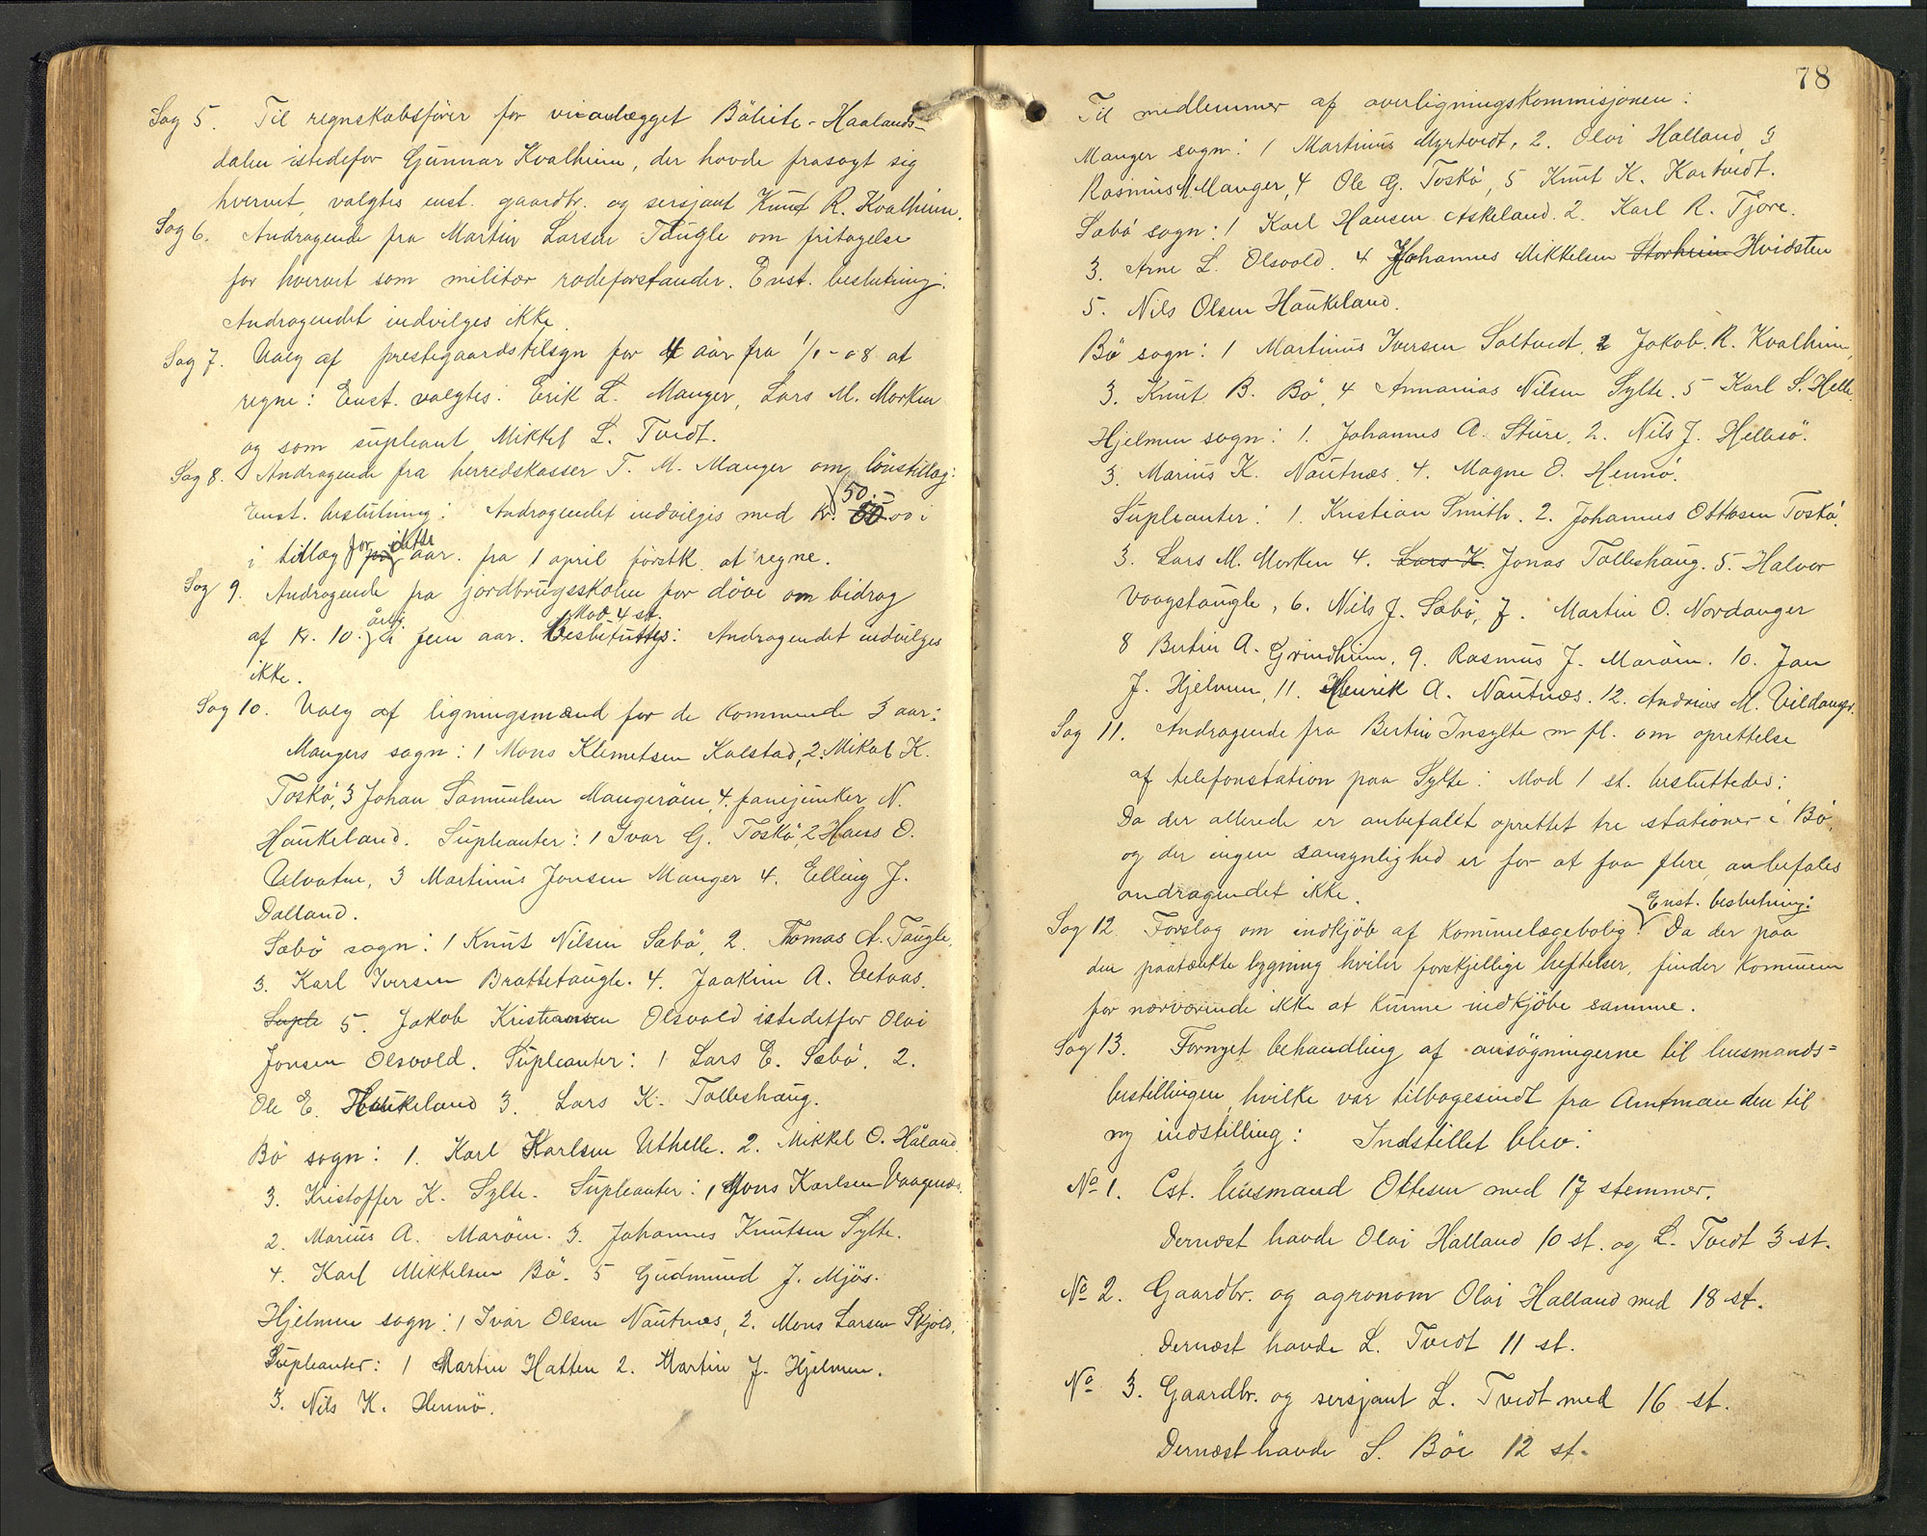 Sag 5. Til regnskabsfører for veianlægget Böleite-Haalands-
dalen istedefor Gunnar Kvalheim, der havde frasagt sig
hvervet, valgtes enst. gaardbr. og sersjant Knut R. Kvalheim.
Sag 6. Andragende fra Martin Larsen Taugle om fritagelse
for hvervet som militær rodeforstander. Enst. beslutning:
Andragendet indvilges ikke.
Sag 7. Valg af prestegaardstilsyn for 4 aar fra 1/1-08 at
regne: Enst. valgtes: Erik L. Manger, Lars M. Morken
og som supleant Mikkel L. Tvedt.
Sag 8. Andragende fra herredskasser T. M. Manger om lönstillæg:
Enst. beslutning: Andragendet indvilges med kr. 50.- 00 i
i tillæg for dette aar. fra 1 april förstk. at regne.
Sag 9. Andragende fra jordbrugsskolen for döve om bidrag
af kr. 10. årlig i fem aar. Mod 4 st. besluttes: Andragendet indvilges
ikke.
Sag 10. Valg af ligningsmænd for de kommende 3 aar:
Mangers sogn: 1 Mons Klemetsen Kalstad, 2. Mikal K.
Toskö, 3 Johan Samuelsen Mangeröen, 4. fanejunker N.
Haukeland. Supleanter: 1 Ivar G. Toskö, 2 Hans O.
Ulvatne, 3 Martinus Jonsen Manger 4. Elling J.
Dalland.
Sæbö sogn: 1 Knut Nilsen Sæbö, 2. Thomas A. Taugle,
3. Karl Iversen Brattetaugle. 4. Joakim A. Vetaas.
Suple 5. Jakob Kristiansen Olsvold istedetfor Olai
Jonsen Olsvold. Supleanter: 1 Lars E. Sæbö. 2.
Ole E. Haukeland 3. Lars K. Talleshaug.
Bö sogn: 1. Karl Karlsen Uthelle. 2. Mikkel O. Håland
3. Kristoffer K. Sylte. Supleanter: 1 Mons Karlsen Vaagenes.
2. Marius A. Maröen. 3. Johannes Knutsen Sylte.
4. Karl Mikkelsen Bö. 5 Gudmund J. Mjös.
Hjelmen sogn: 1 Ivar Olsen Nautnes, 2. Mons Larsen Skjold.
Supleanter: 1 Martin Hatten 2. Martin J. Hjelmen.
3. Nils K. Hernö.
78
Til medlemmer af overligningskommisjonen:
Manger sogn: 1 Martinus Myrtvedt, 2. Olai Halland 3
Rasmus M. Manger, 4 Ole G. Toskö, 5 Knut K. Kartveidt.
Sæbö sogn: 1 Karl Hansen Askeland. 2. Karl R. Fjøre.
3. Arne L. Olsvold. 4 Johannes Mikkelsen Storheim Hvidsten
5. Nils Olsen Haukeland.
Bö sogn: 1 Martinus Iversen Saltvedt. 2 Jakob R. Kvalheim,
3. Knut B. Bö, 4 Annanias Nilsen Sylte. 5 Karl S. Helle.
Hjelmen sogn: 1. Johannes A. Sture, 2. Nils J. Hellesö.
3. Marius K. Nautnæs. 4. Magne O. Hernö.
Supleanter: 1. Kristian Smith. 2. Johannes Ottesen Toskö.
3. Lars M. Morken 4. Lars K. Jonas Talleshaug. 5. Halvor
Vaagstaugle, 6. Nils J. Sæbö, 7. Martin O. Nordanger
8 Bertin A. Grindheim. 9. Rasmus J. Maröen. 10. Jan
J. Hjelmen, 11. Henrik A. Nautnæs. 12. Andreas M. Vildanger.
Sag 11. Andragende fra Bertin Insylte m fl. om oprettelse
af telefonstation paa Sylte: Mod 1 st. besluttedes:
Da der allerede er anbefalet oprettet tre stationer i Bö,
og der ingen sansynlighed er for at faa flere, anbefales
andragendet ikke.
Sag 12. Forslag om indkjöb af kommunelægebolig. Enst. beslutning: Da der paa
den paatænkte bygning hviler forskjellige heftelser, finder kommunen
for nærværende ikke at kunne indkjöbe samme.
Sag 13. Fornyet behandling af ansögningerne til lensmands-
bestillingen, hvilke var tilbagesendt fra Amtmanden til
ny indstilling: Indstillet blev:
No 1. Cst. lensmand Ottesen med 17 stemmer.
Dernæst havde Olai Halland 10 st. og L. Tvedt 3 st.
No 2. Gaardbr. og agronom Olai Halland med 18 st.
Dernæst havde L. Tvedt 11 st.
No 3. Gaardbr. og sersjant L. Tvedt med 16 st.
Dernæst havde S. Böe 12 st.